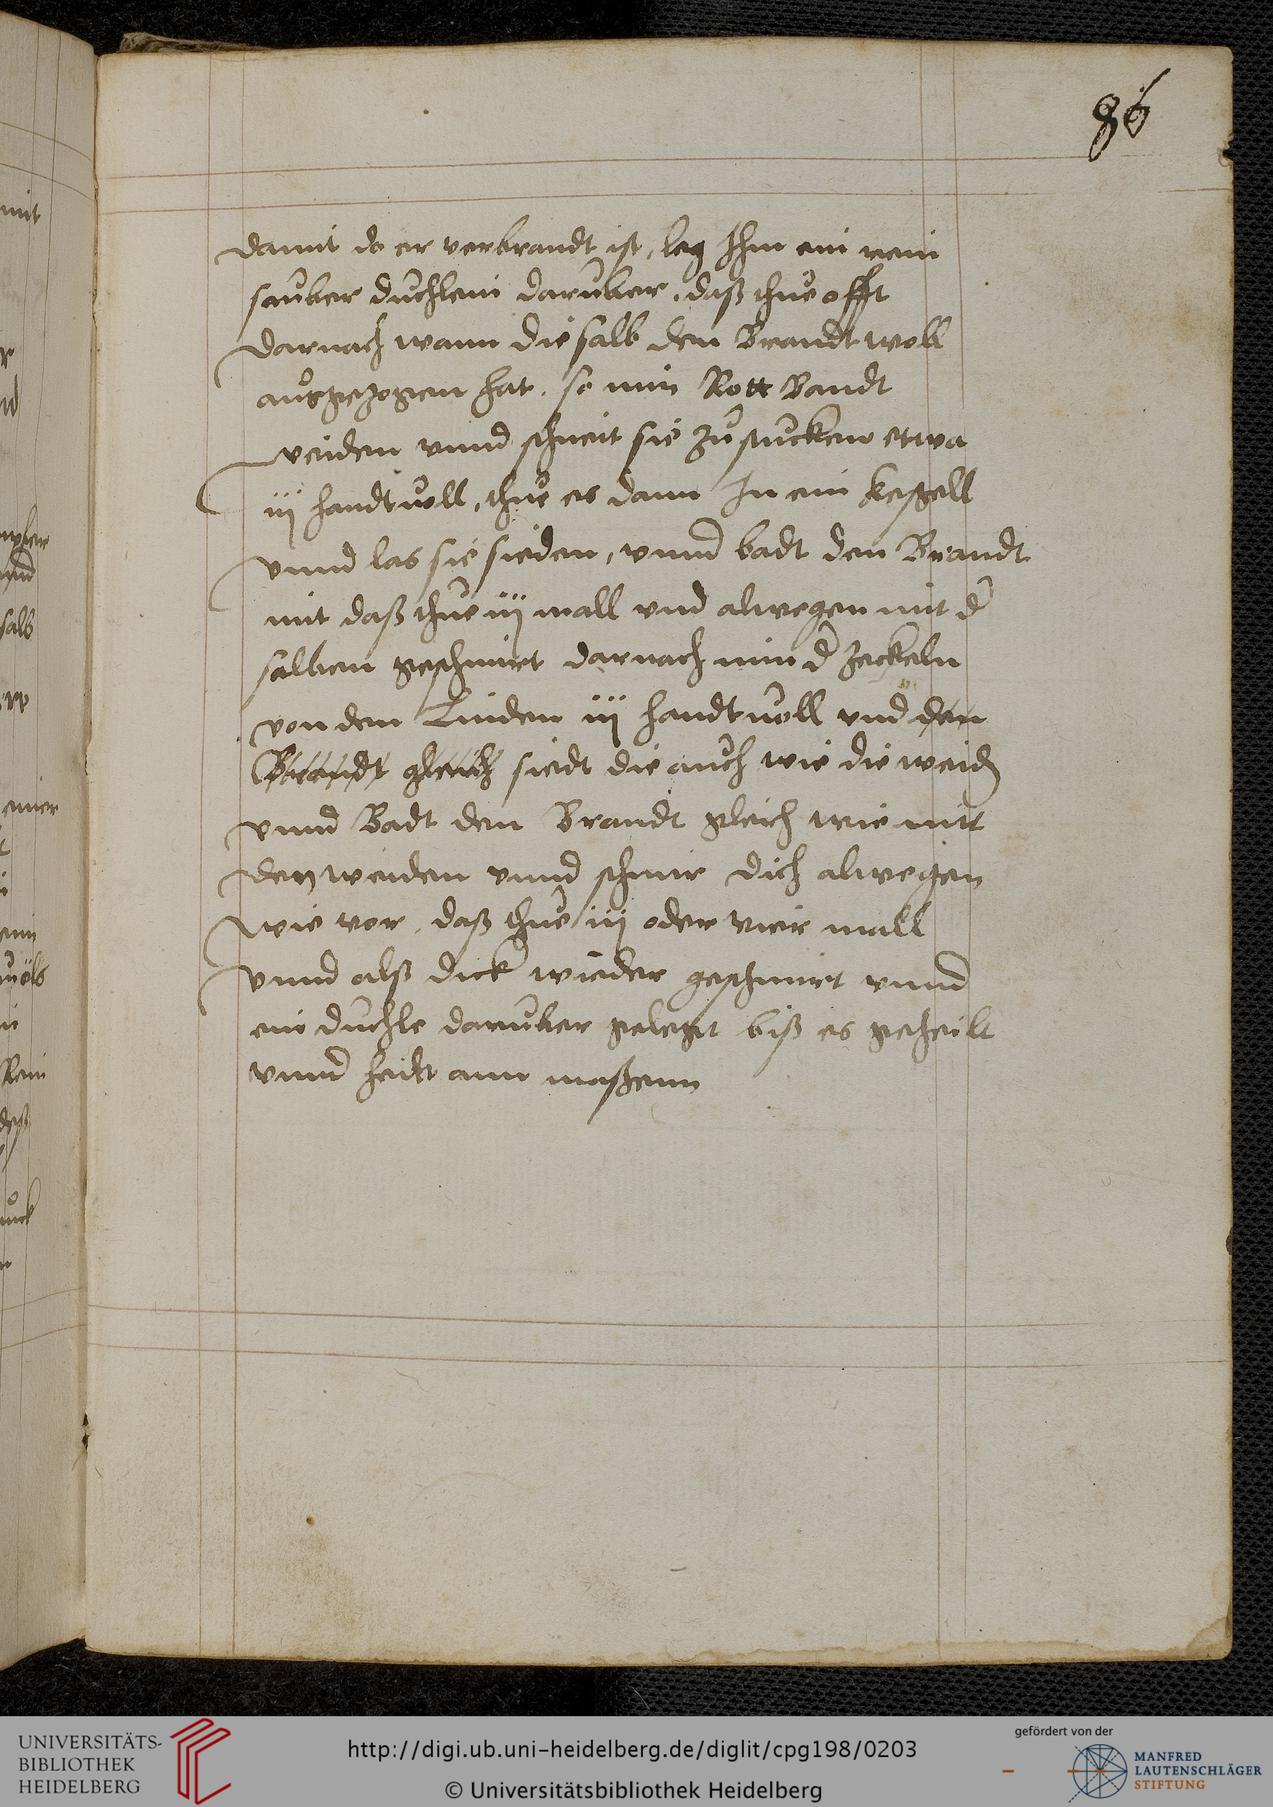 86
damit do er verbrandt ist, leg Ihm ein rein
sauber duchlein daruber, daß thue offt
darnach wann die salb den Brandt woll
ausgezogen hat, so nim Rott Bandt
weiden vnnd schneit sie zu stucken etwa
iij handt voll, thue es dann In ein keßell
vnnd las sie sieden, vnnd badt den Brandt
mit daß thue iij mall vnd alwegen mit d
salben geschmirt darnach nim d zeckeln
von den Linden iij handt voll vnd den
Brandt gleich siedt die auch wie die weid
vnnd Badt den Brandt gleich wie mitt
den weiden vnnd schmir dich alwegen
wie vor, daß thue iij oder vier mall
vnnd alß dick wieder geschmirt vnnd
ein duchle daruber gelegt biß es geheilt
vnnd heilt ann maßenn
mit
salb
einer
UNIVERSITÄTS-
BIBLIOTHEK
HEIDELBERG
http://digi.ub.uni-heidelberg.de/diglit/cpg198/0203
© Universitätsbibliothek Heidelberg
gefördert von der
MANFRED
LAUTENSCHLÄGER
STIFTUNG